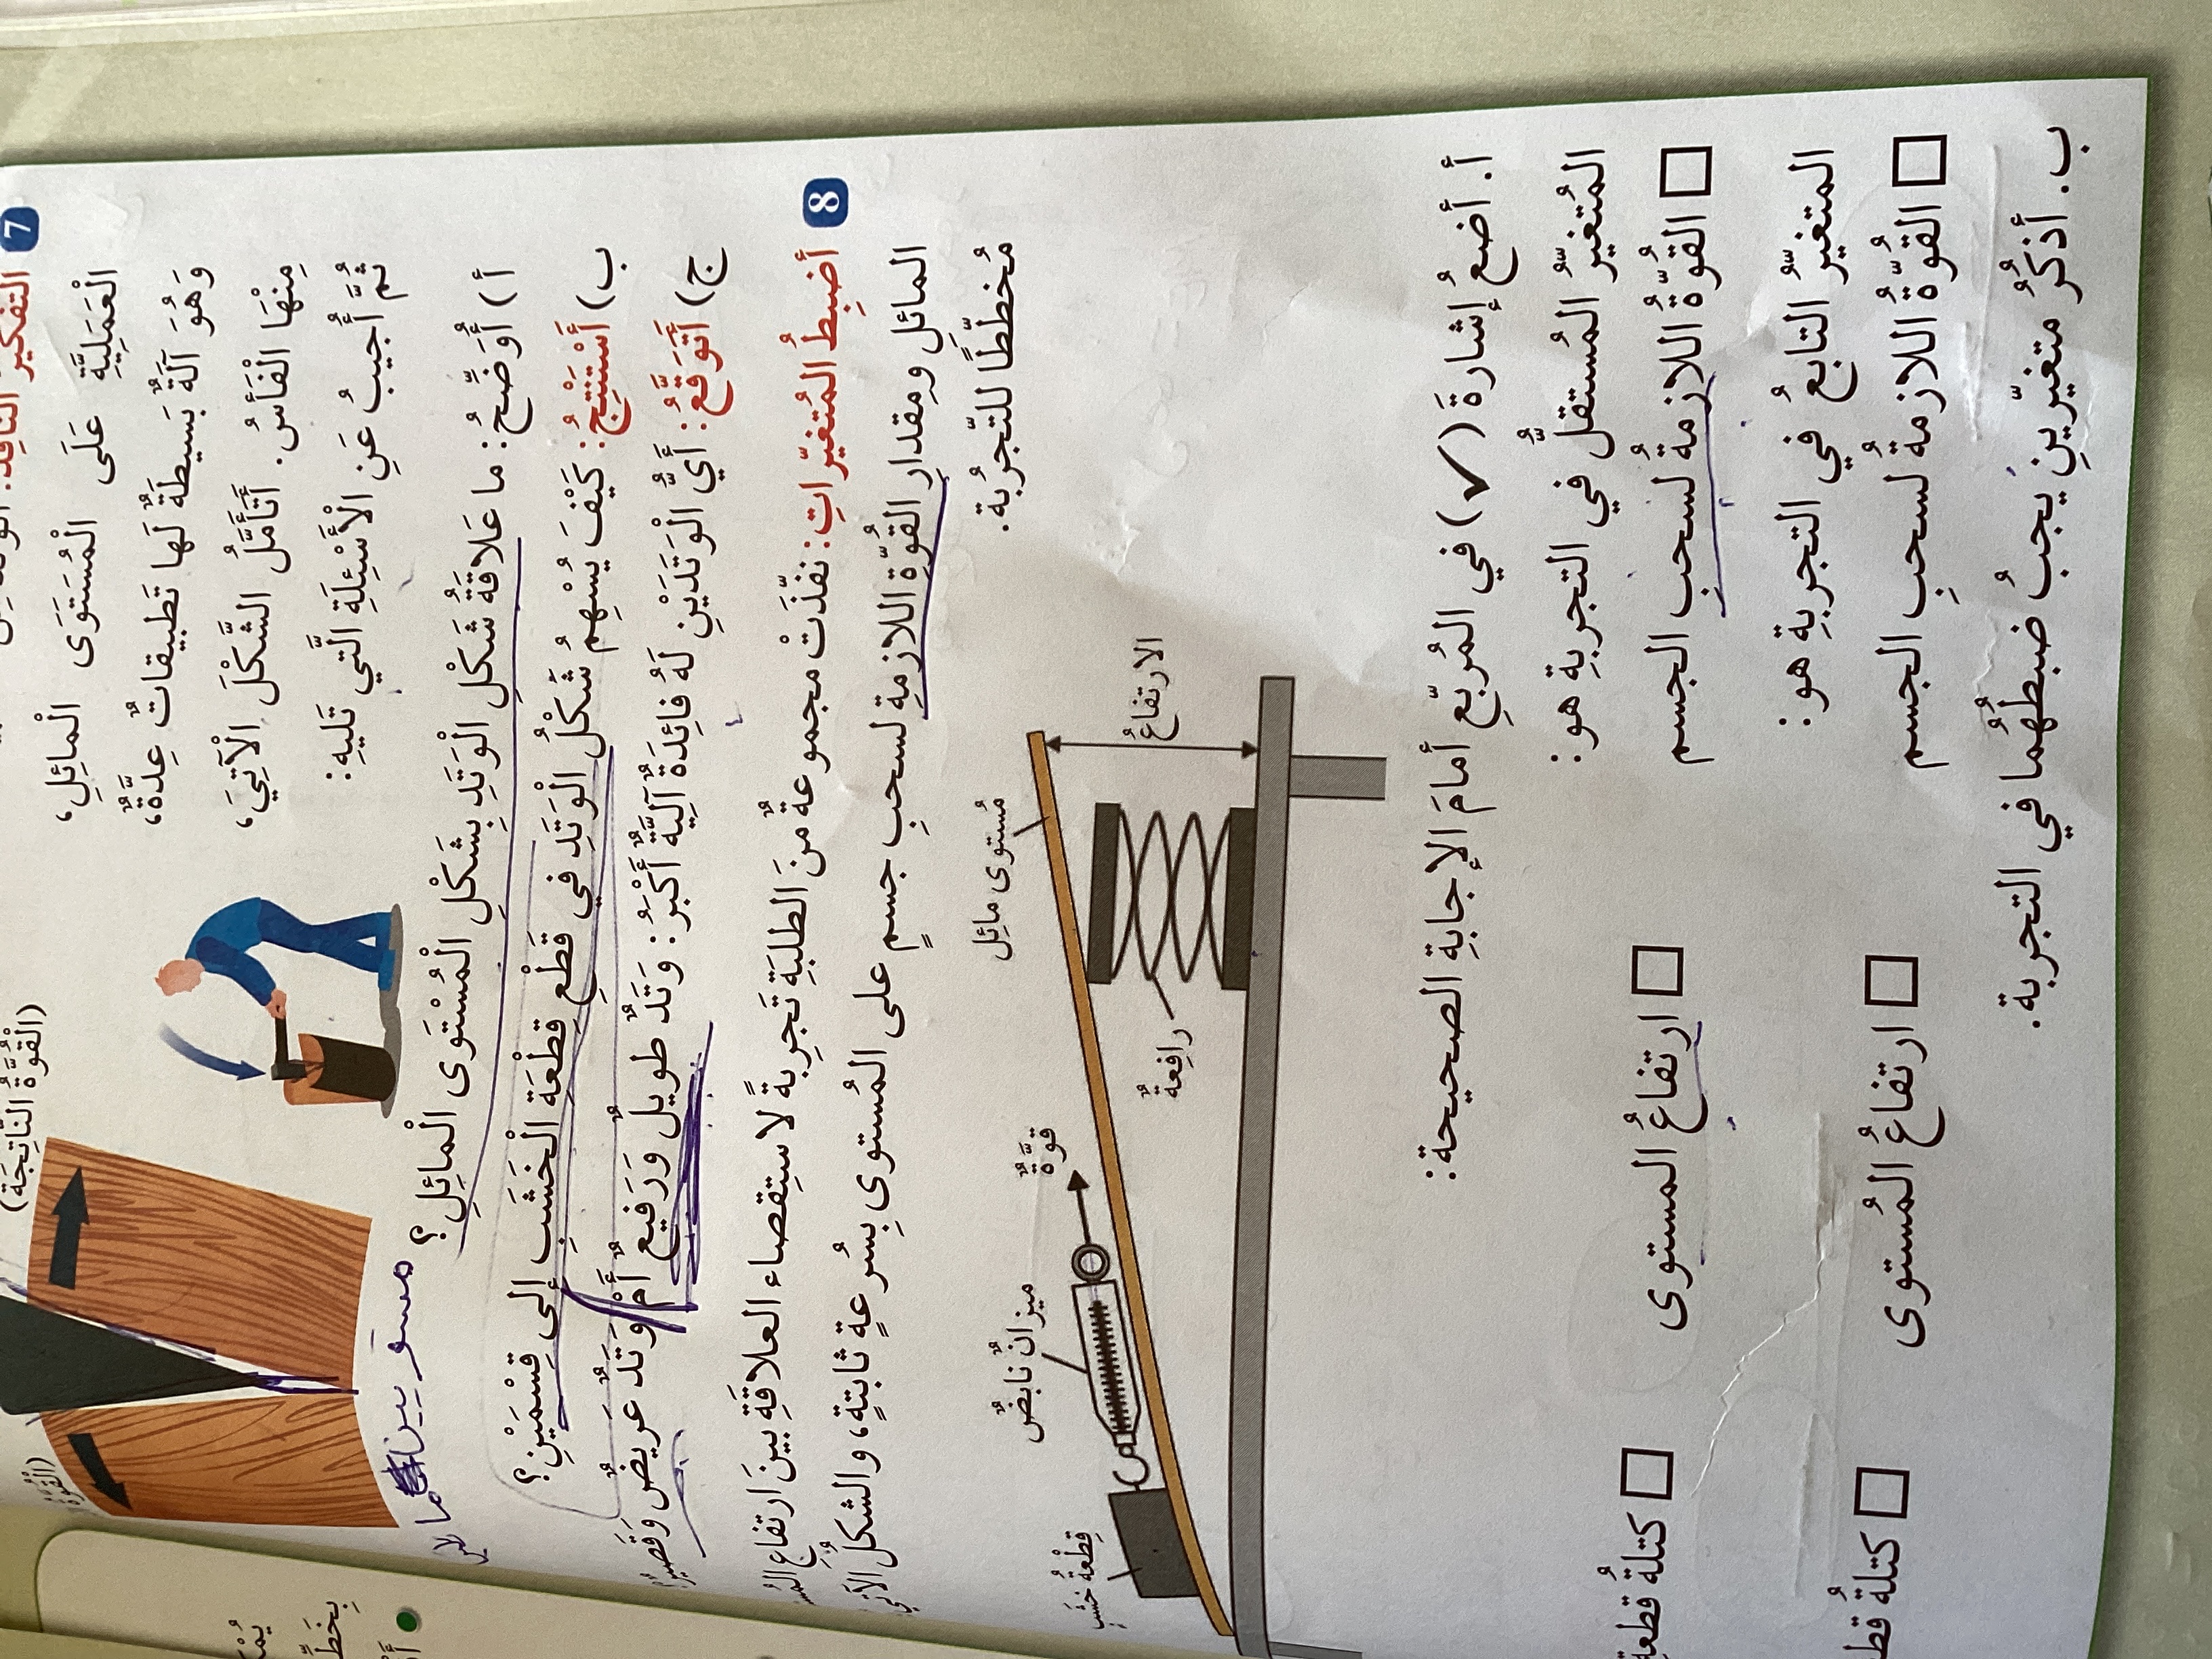 7 التفكير الناقد:
على المستوى المائل،
الْعَمَلِيَّةِ
وَهُوَ آلَةٌ بَسيطَةٌ لَها تَطبيقاتٌ عِدَّةٌ،
مِنْهَا الْفَأْسُ. أَتَأَمَّلُ الشَّكْلَ الْآتِيَ،
ثُمَّ أُجيبُ عَنِ الْأَسْئِلَةِ الَّتي تَليهِ:
(الْقُوَّةُ النَّاتِجَة)
مستويين
أ) أُوَضِّحُ: ما عَلاقَةُ شَكْلِ الْوَتَدِ بِشَكْلِ الْمُسْتَوَى الْمائِلِ؟
ب) أَسْتَنْتِجُ: كَيْفَ يُسْهِمُ شَكْلُ الْوَتَدِ في قَطْعِ قِطْعَةِ الْخَشَبِ إِلى قِسْمَيْنِ؟
ج) أَتَوَقَّعُ: أَيُّ الْوَتَدَيْنِ لَهُ فائِدَةٌ آلِيَّةٌ أَكْبَرُ: وَتَدٌ طَويلٌ وَرَفيعٌ أَمْ وَتَدٌ عَريضٌ وَقَصيرٌ؟
8 أضبِطُ المُتغيّراتِ: نفّذَتْ مجموعةٌ منَ الطلبَةِ تَجرِبةً لاستِقصاء العلاقَةِ بينَ ارتفاعِ
المائلِ ومِقدارِ القوّةِ اللازمةِ لسحبِ جسمٍ على المُستوى بسُرعةٍ ثابتةٍ، والشكلُ الآتي
مُخطّطًا للتّجرُبة.
مُستوى مائِل
الارتفاعُ
رافِعةٌ
قوَّةٌ
ميزانٌ نابضٌ
قِطْعةُ خَشَبٍ
أ. أضعُ إشارةَ (✓) في المُربّعِ أمامَ الإجابةِ الصحيحة:
المُتغيّرُ المُستقلُّ في التجربةِ هو:
□ القوّةُ اللازمةُ لسحبِ الجسم □ ارتفاعُ المستوى □ كتلةُ قطعة
المتغيّرُ التابعُ في التجربةِ هو:
□ القوّةُ اللازمةُ لسحبِ الجسم □ ارتفاعُ المُستوى □ كتلةُ
ب. أذكُرُ متغيّرينِ يجبُ ضبطهُما في التجربة.